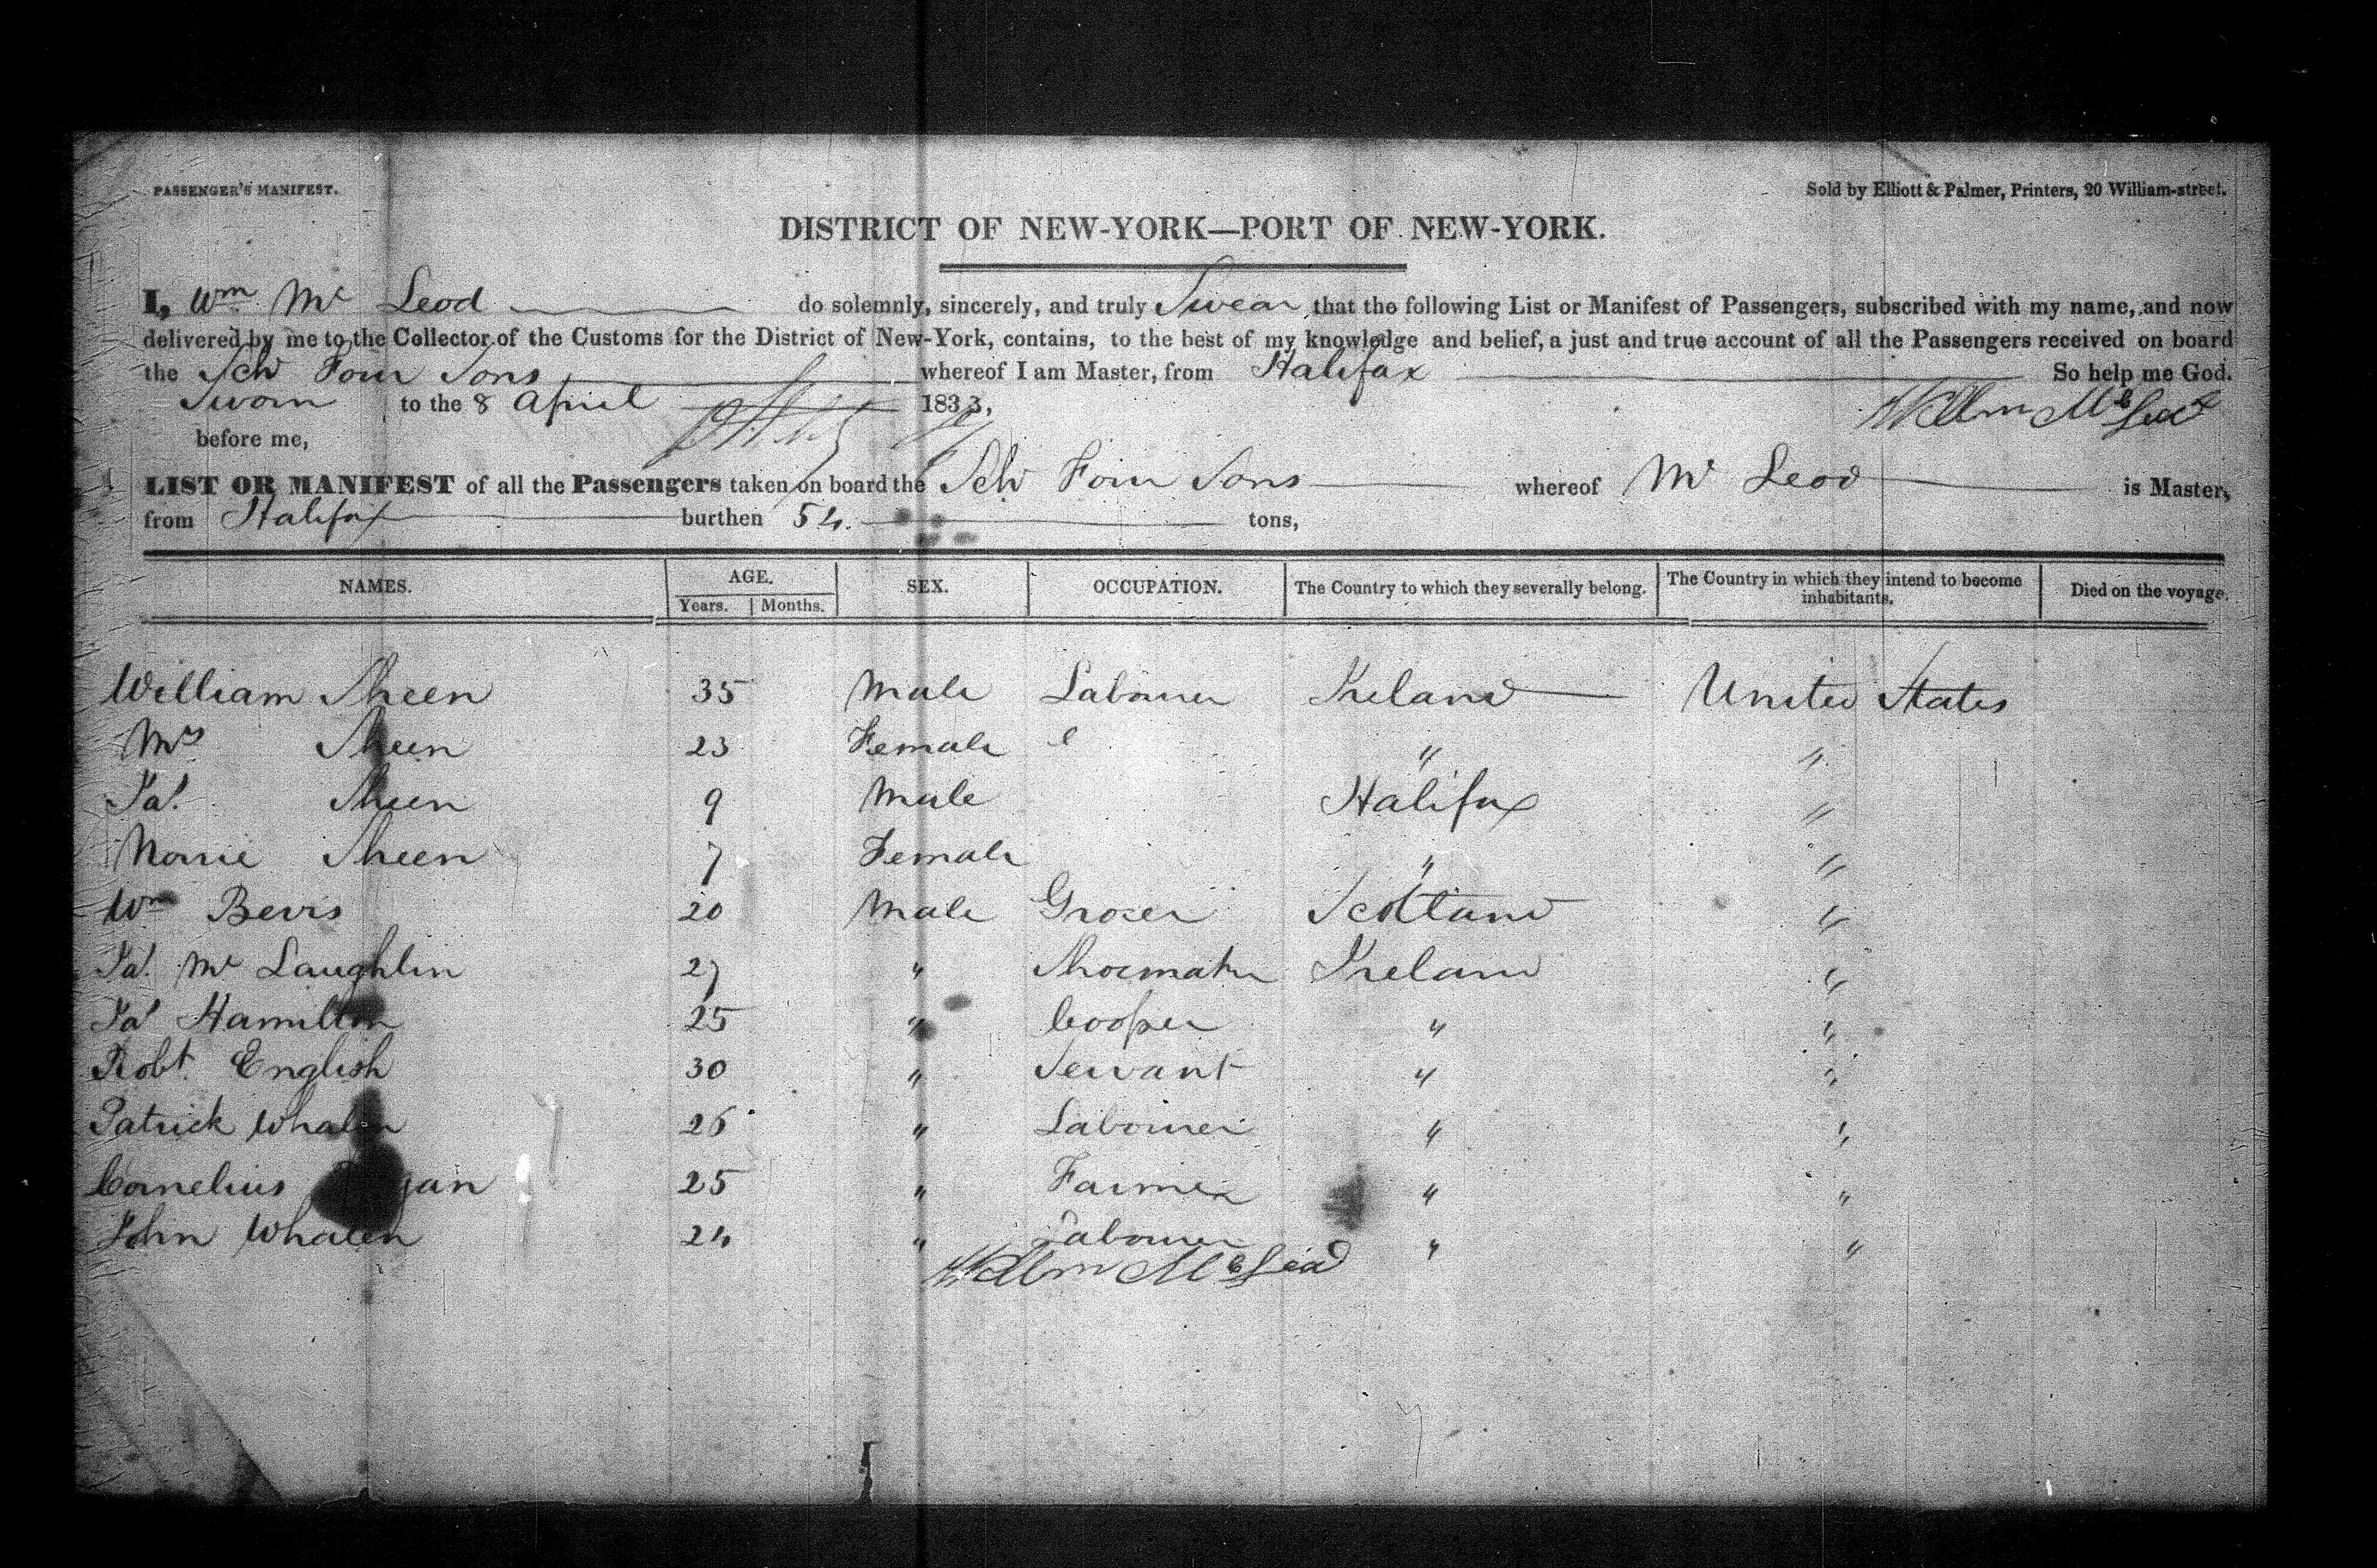 PASSENGER'S MANIFEST.
Sold by Elliott & Palmer, Printers, 20 William-street.
DISTRICT OF NEW-YORK—PORT OF NEW-YORK.
I, Wm Mc Leod do solemnly, sincerely, and truly Swear that the following List or Manifest of Passengers, subscribed with my name, and now
delivered by me to the Collector of the Customs for the District of New-York, contains, to the best of my knowledge and belief, a just and true account of all the Passengers received on board
the Sch Four Sons whereof I am Master, from Halifax So help me God.
Sworn to the 8 April 1833,
Willm McLeod
before me,
LIST OR MANIFEST of all the Passengers taken on board the Sch Four Sons whereof Mc Leod is Master,
from Halifax burthen 54 tons,
NAMES. AGE. SEX. OCCUPATION. The Country to which they severally belong. The Country in which they intend to become inhabitants. Died on the voyage.
Years. Months.
William Sheen 35 Male Labourer Ireland United States
Mrs Sheen 23 Female " "
Jas. Sheen 9 Male Halifax "
Sheen 7 Female " "
Wm Bevis 20 Male Grocer Scotland "
Jas. Mc Laughlin 27 " Shoemaker Ireland "
Jas Hamilton 25 " Cooper " "
Robt. English 30 " Servant " "
Patrick Whalen 26 " Labourer " "
Cornelius 25 " Farmer " "
John Whalen 24 " Labourer " "
Willm McLeod